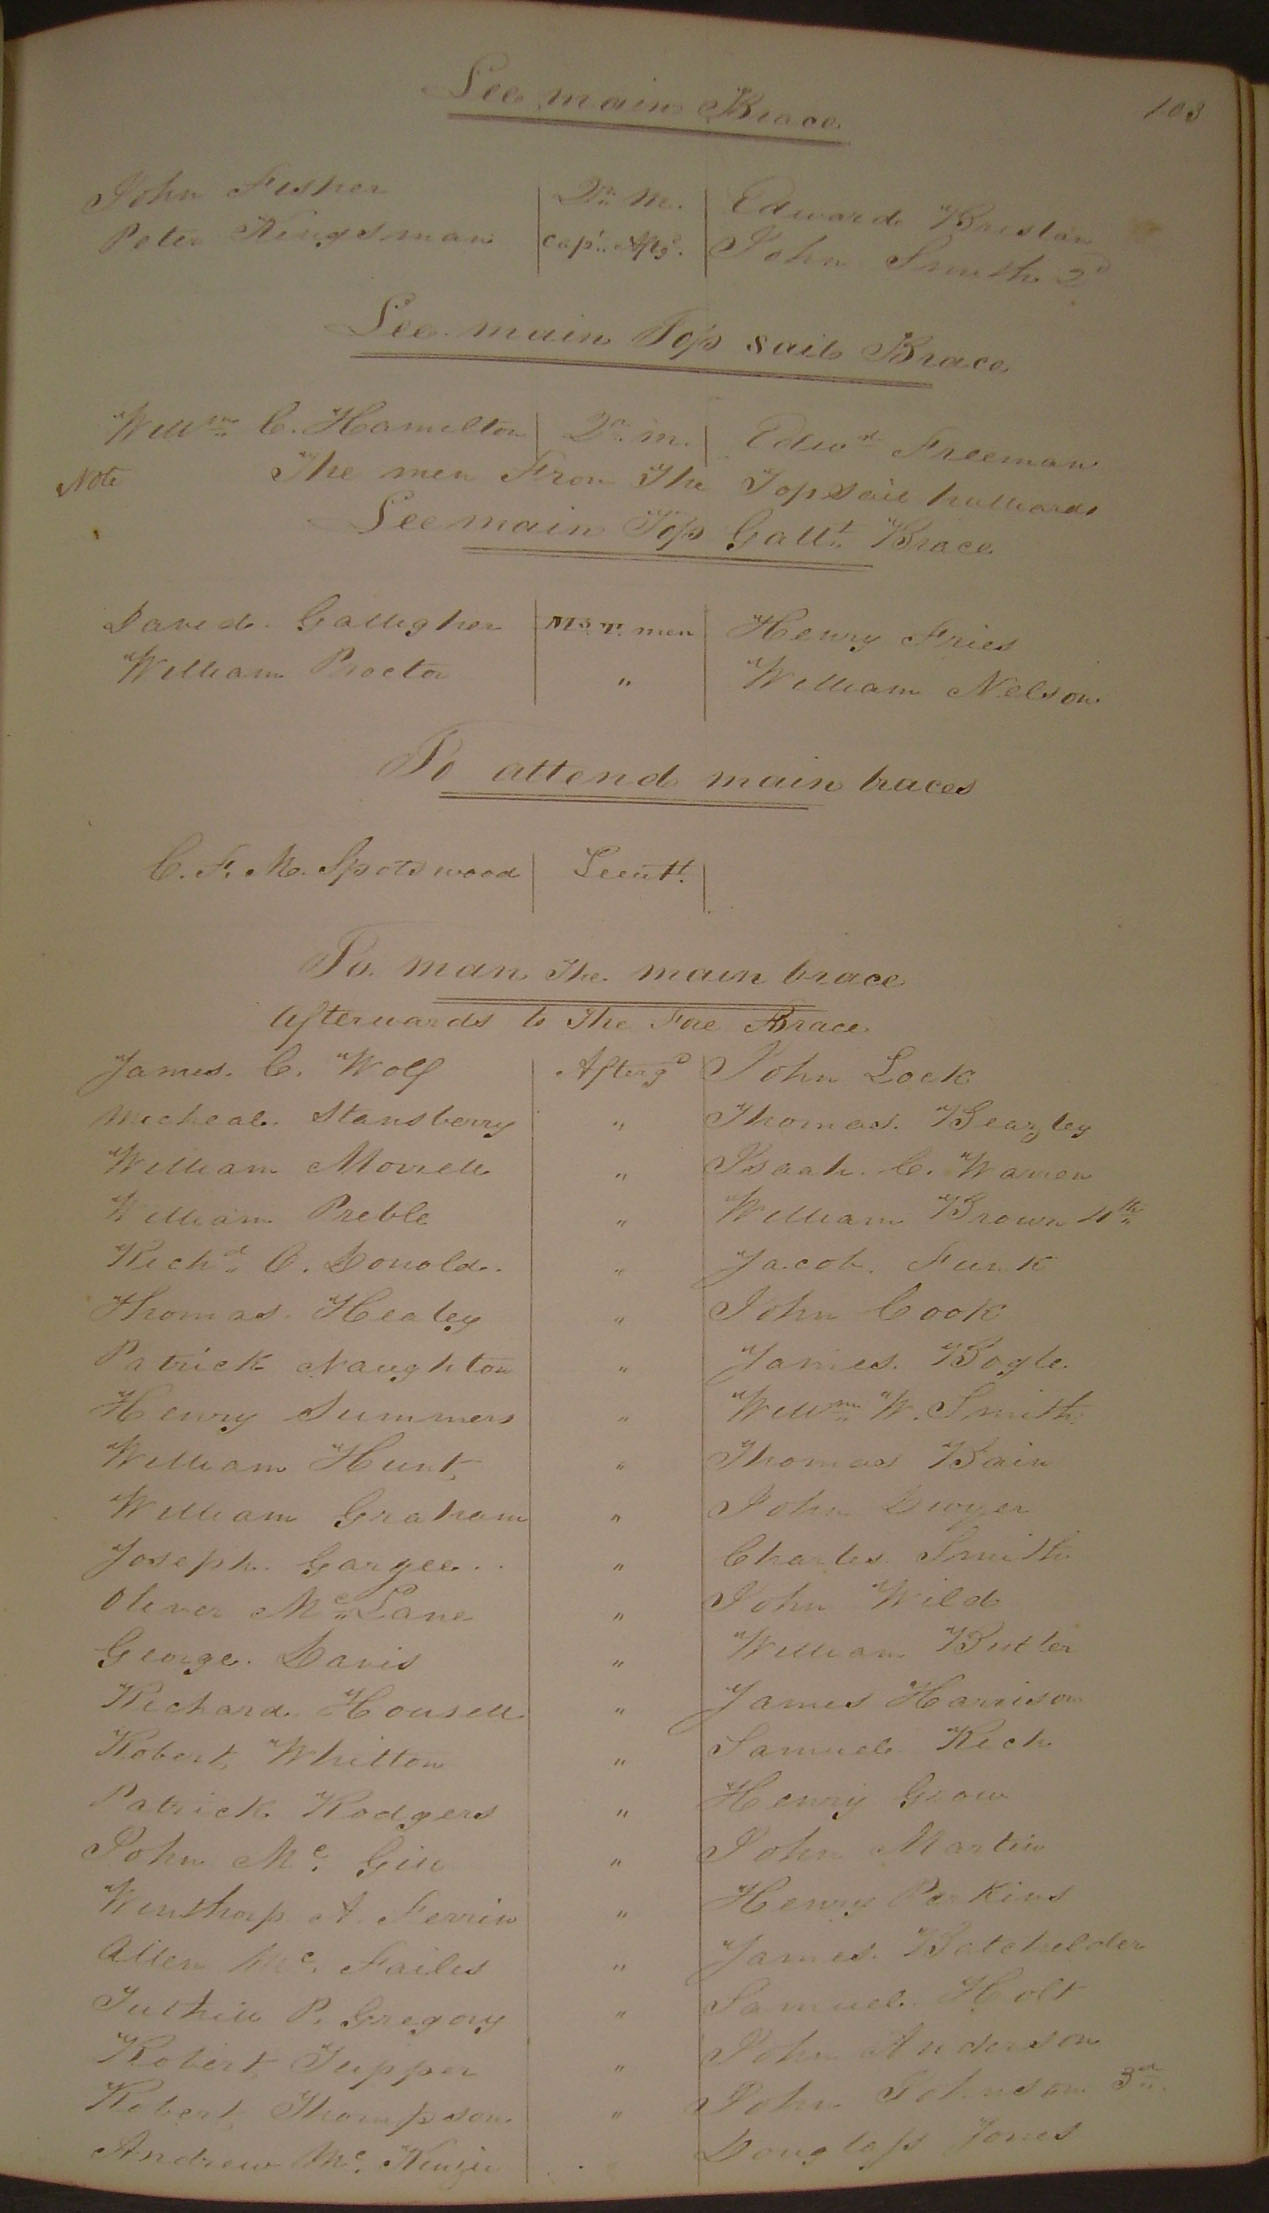 103
Lee main Brace
John Fisher Qr. M. Edward Breslan
Peter Kingsman Capt. Aftg. John Smith 2d
Lee main Top sail Brace
Willm. C. Hamilton Qr. m. Edwd Freeman
Note The men From The Topsail hulliards
Lee main Top Gallt. Brace
David Gallegher M. T. men Henry Fries
William Proctor " William Nelson
To attend main braces
C. F. M. Spotswood Lieutt.
To man The main brace
Afterwards to The Fore Brace
James. C. Wolf Afterg'd John Lock
Micheal Stansberry " Thomas. Beazley
William Morrell " Isaah. C. Warren
William Preble " William Brown 4th
Richd. O. Donold. " Jacob. Funk
Thomas. Healey " John Cook
Patrick Naughton " James. Bogle.
Henry Summers " Willm. W. Smith
William Hunt " Thomas Bain
William Graham " John Dwyer
Joseph. Gargee.. " Charles. Smith
Oliver Mc. Lane " John Wild
George. Davis " William Butler
Richard Housell " James Harrison
Robert Whitton " Samuel Rich
Patrick Rodgers " Henry Grow
John Mc. Gill " John Martin
Winthorp A. Ferrin " Henry Perkins
Allen Mc. Failes " James. Batchelder
Tuthill P. Gregory " Samuel. Holt
Robert Tupper " John Anderson
Robert Thompson " John Johnson 3rd.
Andrew Mc. Kenzie Douglass Jones